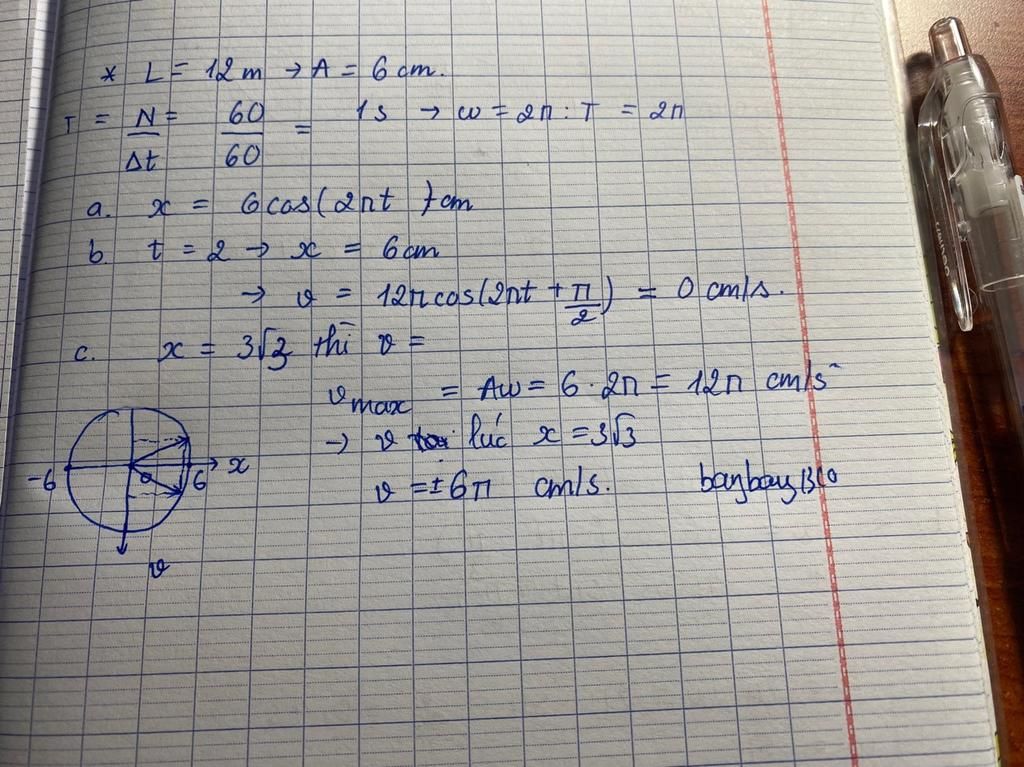 * L = 12 m → A = 6 cm.
T = N/Δt = 60/60 = 1s → ω = 2π : T = 2π
a. x = 6cos(2πt ) cm
b. t = 2 → x = 6cm
→ v = 12πcos(2πt + π/2) = 0 cm/s.
c. x = 3√3 thì v =
v max = Aω = 6 · 2π = 12π cm/s
→ v lúc x = 3√3
v = ± 6π cm/s.
-6 6 x
v